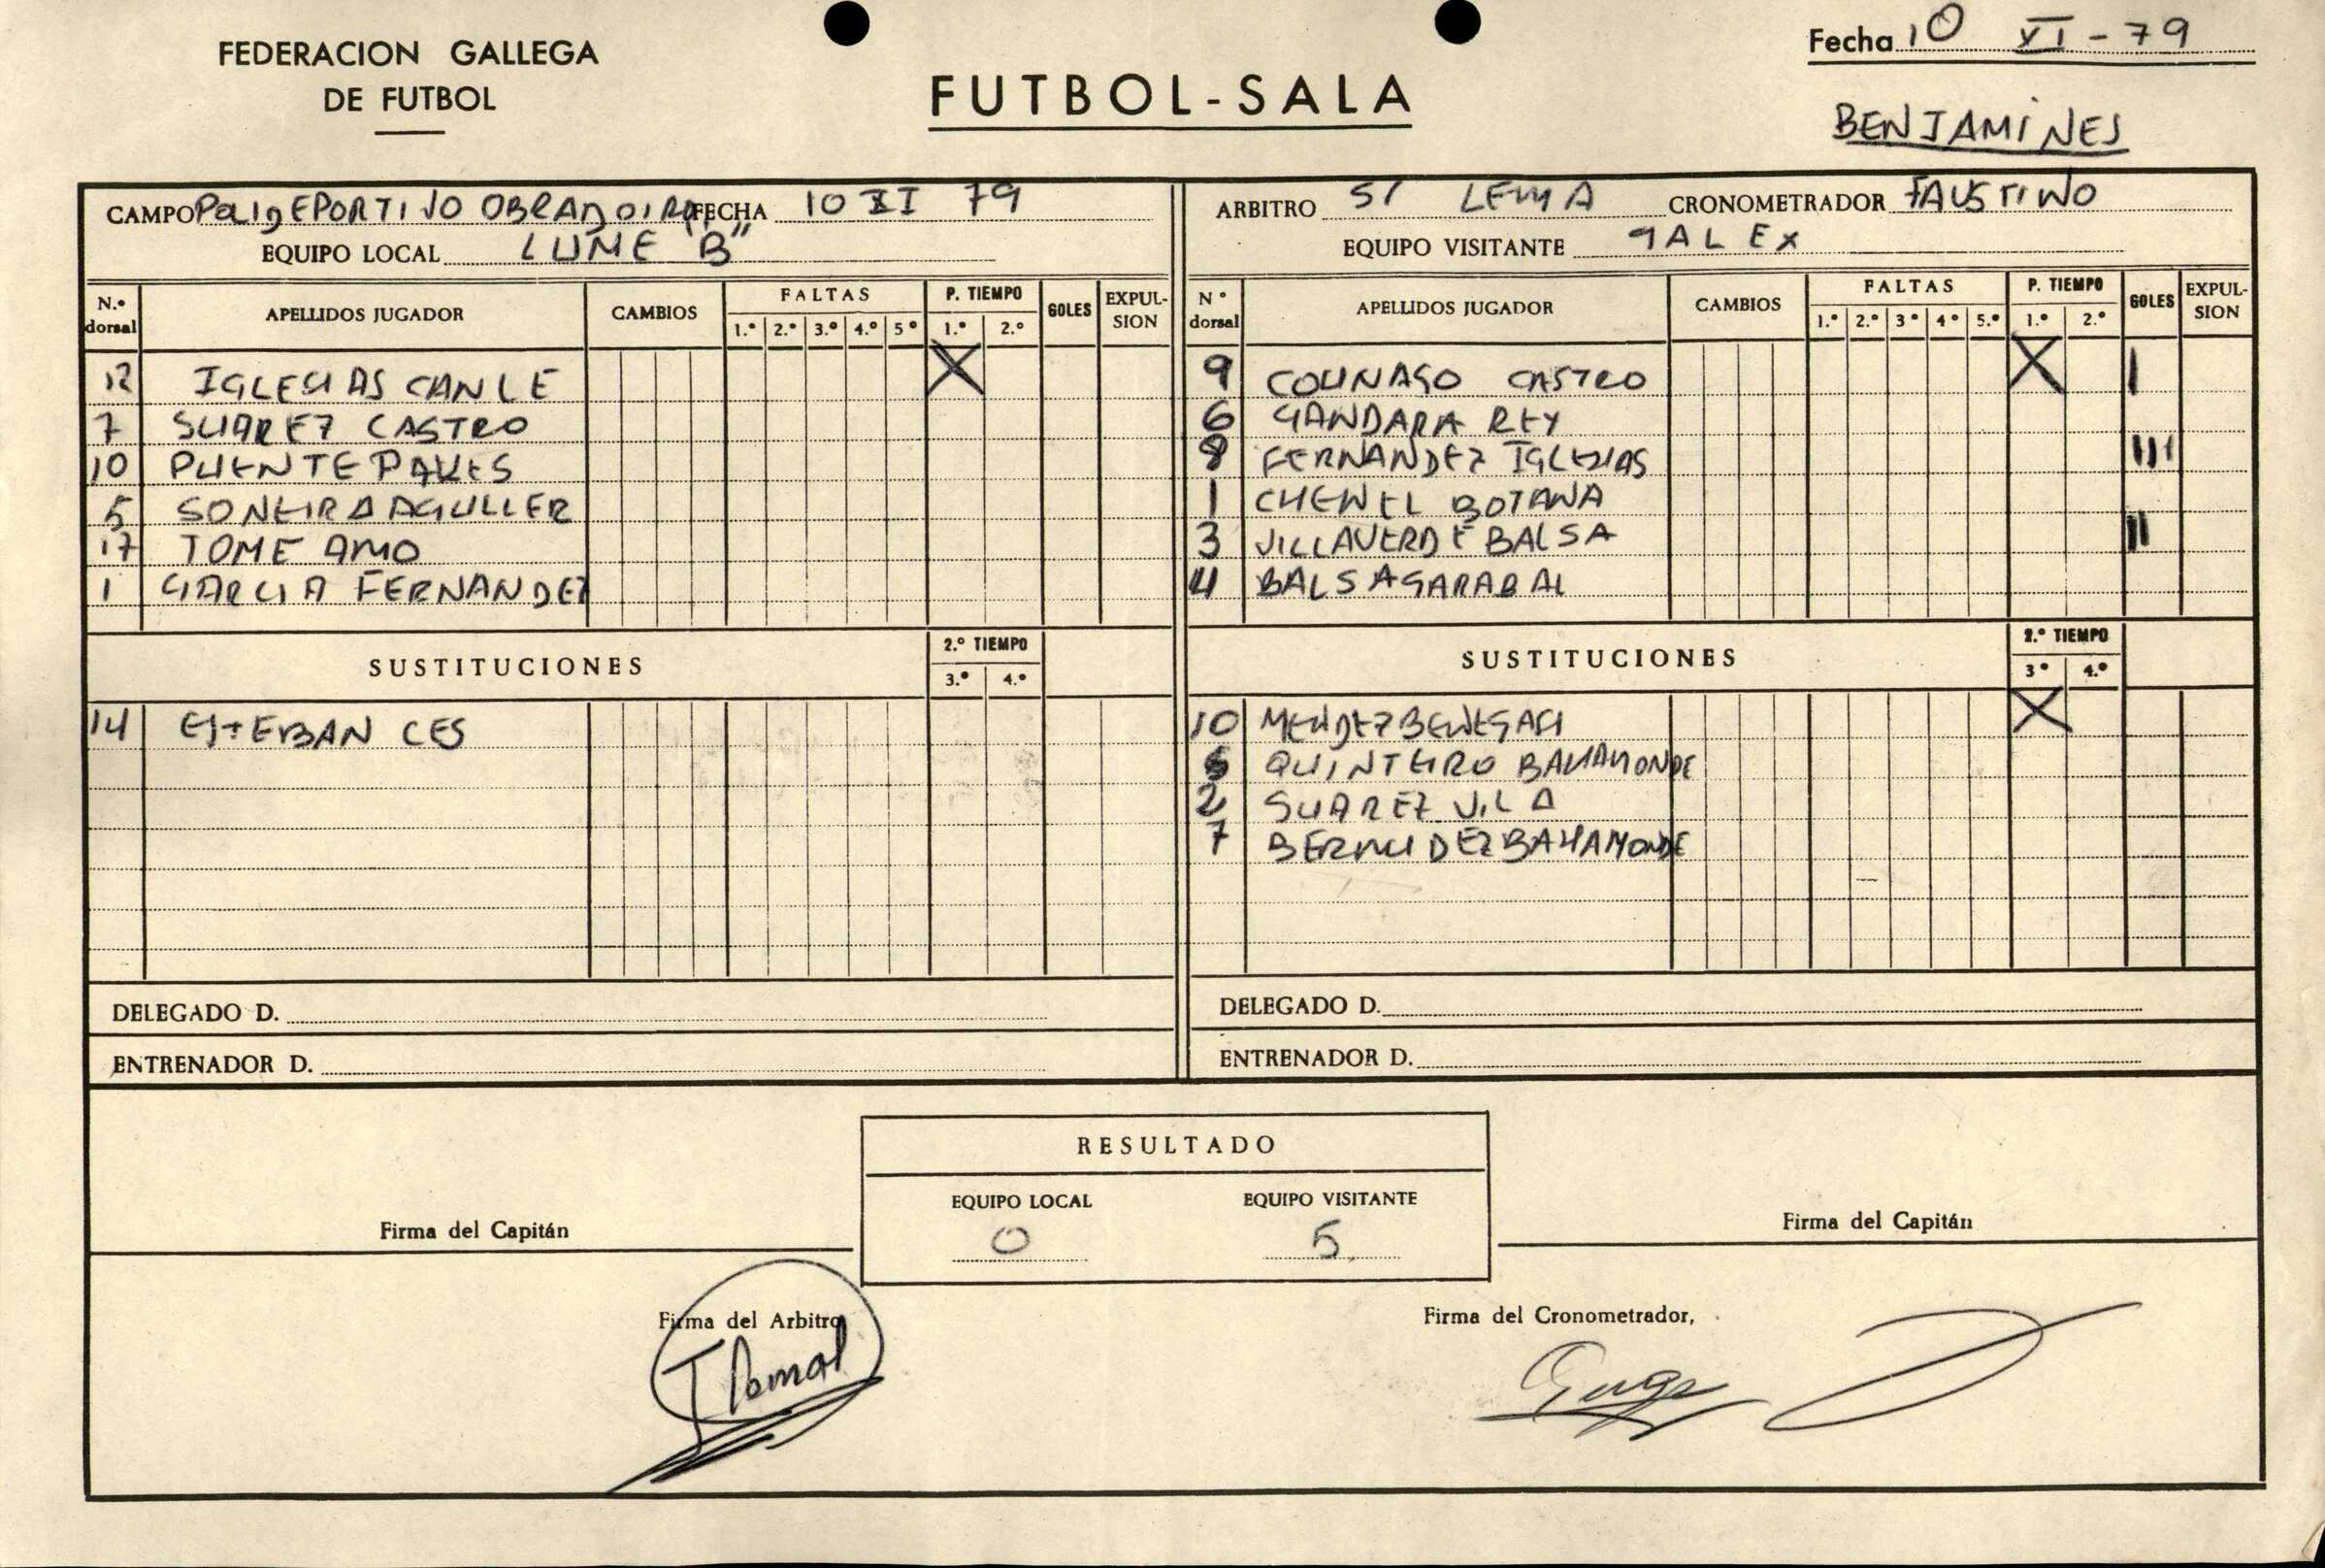 FEDERACION GALLEGA
DE FUTBOL
FUTBOL-SALA
Fecha 10 XI - 79
BENJAMINES
CAMPO POLIDEPORTIVO OBRADOIRO FECHA 10 XI 79
EQUIPO LOCAL LUME "B"
N.º dorsal APELLIDOS JUGADOR CAMBIOS FALTAS 1.º 2.º 3.º 4.º 5º P. TIEMPO 1.º 2.º GOLES EXPULSION
12 IGLESIAS CANLE X
7 SUAREZ CASTRO
10 PUENTE
5 SONEIRA AGULLER
17 TOME AMO
1 GARCIA FERNANDEZ
SUSTITUCIONES 2.º TIEMPO 3.º 4.º
14 ESTEBAN CES
DELEGADO D.
ENTRENADOR D.
ARBITRO Sr LEMA CRONOMETRADOR FAUSTINO
EQUIPO VISITANTE GALEX
Nº dorsal APELLIDOS JUGADOR CAMBIOS FALTAS 1.º 2.º 3º 4º 5.º P. TIEMPO 1.º 2.º GOLES EXPULSION
9 COUNAGO CASTRO X I
6 GANDARA REY
8 FERNANDEZ IGLESIAS III
1 CHENEL BOTANA
3 VILLAVERDE BALSA II
4 BALSA GARABAL
SUSTITUCIONES 2.º TIEMPO 3º 4.º
10 MENDEZ X
5 QUINTEIRO BAHAMONDE
2 SUAREZ VILA
7 BERMUDEZ BAHAMONDE
DELEGADO D.
ENTRENADOR D.
RESULTADO
EQUIPO LOCAL EQUIPO VISITANTE
0 5
Firma del Capitán
Firma del Capitán
Firma del Arbitro
Firma del Cronometrador,